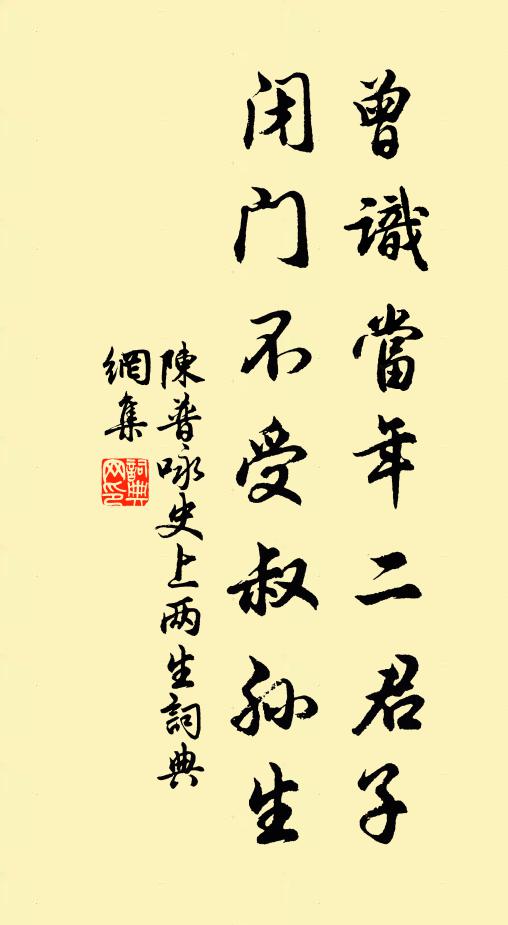 曾識當年二君子
闭门不受叔孙生
陳普咏史上两生詞典
網集
詞典
网印